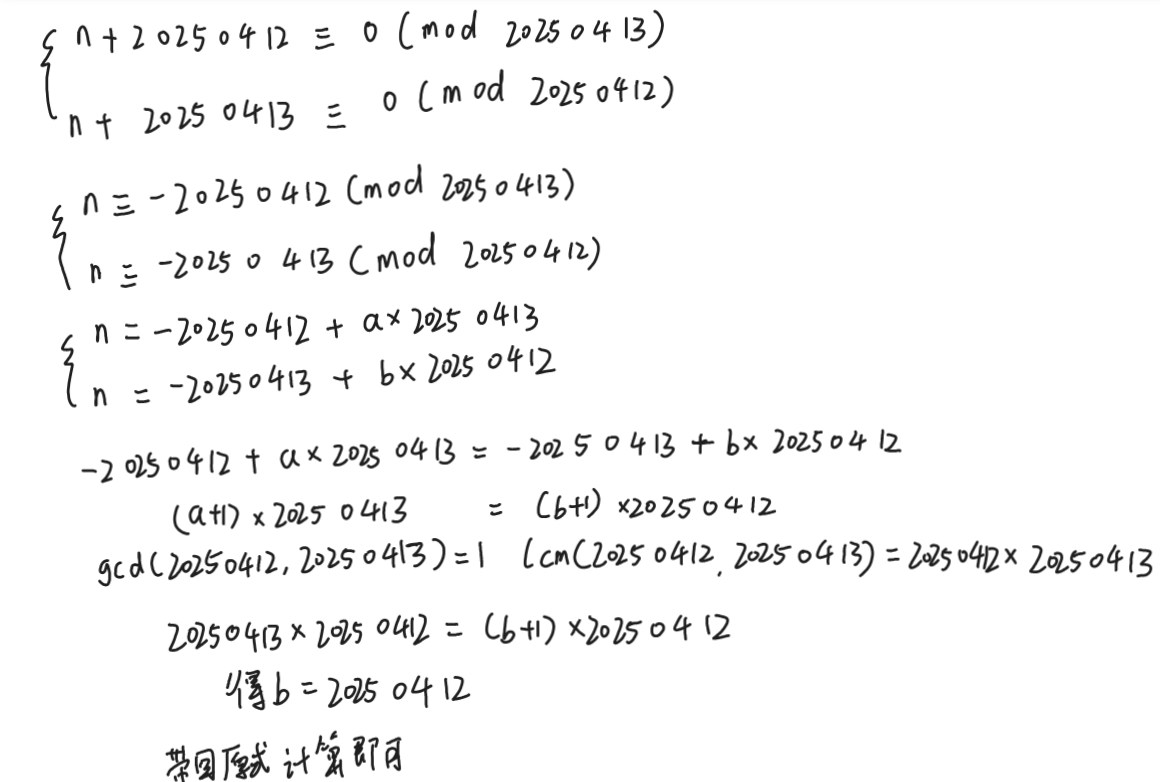 n + 20250412 ≡ 0 (mod 20250413)
n + 20250413 ≡ 0 (mod 20250412)
n ≡ -20250412 (mod 20250413)
n ≡ -20250413 (mod 20250412)
n = -20250412 + a × 20250413
n = -20250413 + b × 20250412
-20250412 + a × 20250413 = -20250413 + b × 20250412
(a+1) × 20250413 = (b+1) × 20250412
gcd(20250412, 20250413) = 1 lcm(20250412, 20250413) = 20250412 × 20250413
20250413 × 20250412 = (b+1) × 20250412
得 b = 20250412
带回原式计算即可